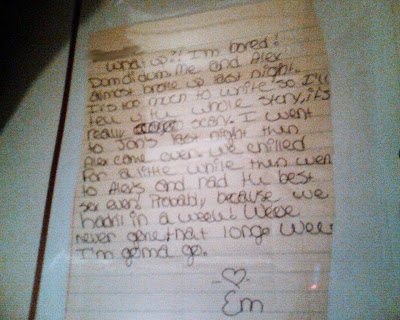 What up?! I'm bored!
Dum di dum. Me and Alex
almost broke up last night.
It's too much to write so I'll
tell u the whole story, it's
really scary. I went
to Jon's last night then
Alex came over. We chilled
for a little while then went
to Alex's and had the best
sex ever! Probably because we
hadn't in a week! We've
never gone that long! Well
I'm gonna go.
-♡-
Em